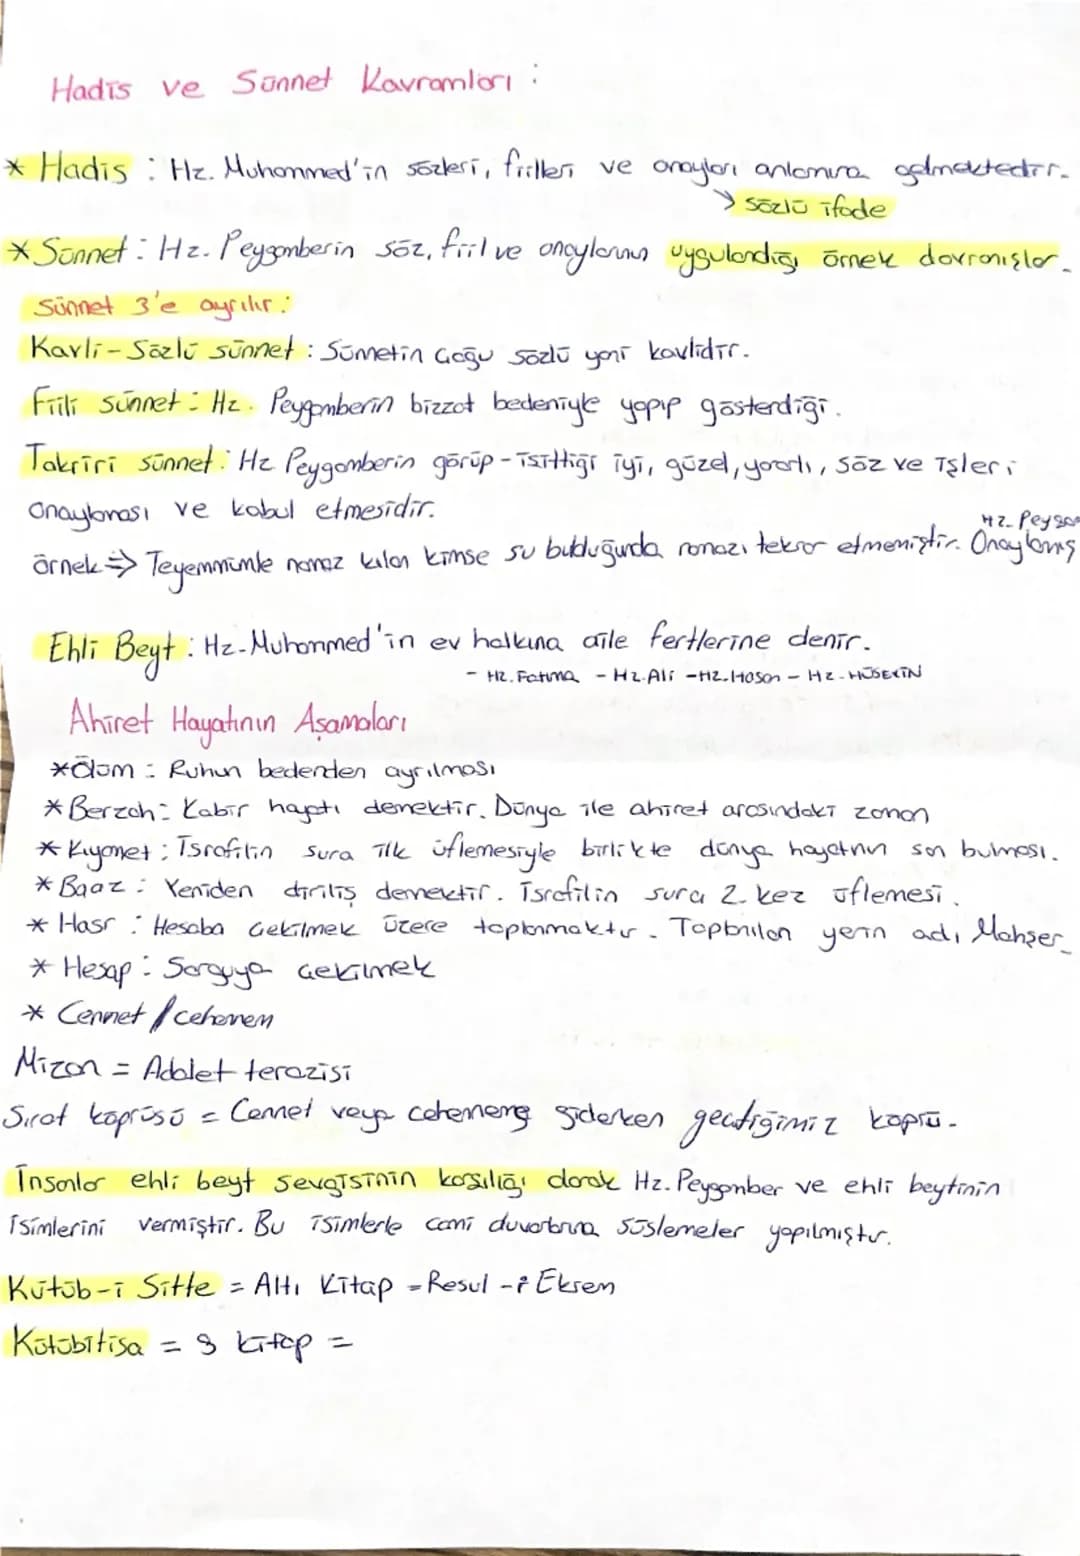 Hadis ve Sünnet Kavramları :
* Hadis : Hz. Muhammed'in sözleri, fiilleri ve onayları anlamına gelmektedir.
→ sözlü ifade
* Sünnet : Hz. Peygamberin söz, fiil ve onaylarının uygulandığı örnek davranışlar.
Sünnet 3'e ayrılır :
Kavli - Sözlü sünnet : Sünnetin çoğu sözlü yani kavlidir.
Fiili sünnet : Hz. Peygamberin bizzat bedeniyle yapıp gösterdiği.
Takriri sünnet : Hz Peygamberin görüp - işittiği iyi, güzel, yararlı, söz ve işleri
onaylaması ve kabul etmesidir.
Hz. Peygam
örnek => Teyemmümle namaz kılan kimse su bulduğunda namazı tekrar etmemiştir. Onaylamış
Ehli Beyt : Hz. Muhammed'in ev halkına aile fertlerine denir.
- Hz. Fatıma - Hz. Ali - Hz. Hasan - Hz. HÜSEYİN
Ahiret Hayatının Aşamaları
* Ölüm : Ruhun bedenden ayrılması
* Berzah : Kabir hayatı demektir. Dünya ile ahiret arasındaki zaman
* Kıyamet : İsrafilin sura ilk üflemesiyle birlikte dünya hayatının son bulması.
* Baaz : Yeniden diriliş demektir. İsrafilin sura 2. kez üflemesi.
* Hasr : Hesaba çekilmek üzere toplanmaktır. Toplanılan yerin adı Mahşer.
* Hesap : Sorguya çekilmek
* Cennet / cehenem
Mizan = Adalet terazisi
Sırat köprüsü = Cennet veya ceheneme giderken geçtiğimiz köprü.
İnsanlar ehli beyt sevgisinin karşılığı olarak Hz. Peygamber ve ehli beytinin
isimlerini vermiştir. Bu isimlerle cami duvarlarına süslemeler yapılmıştır.
Kütüb-i Sitte = Altı Kitap - Resul - i Ekrem
Kütübitisa = 9 kitap =